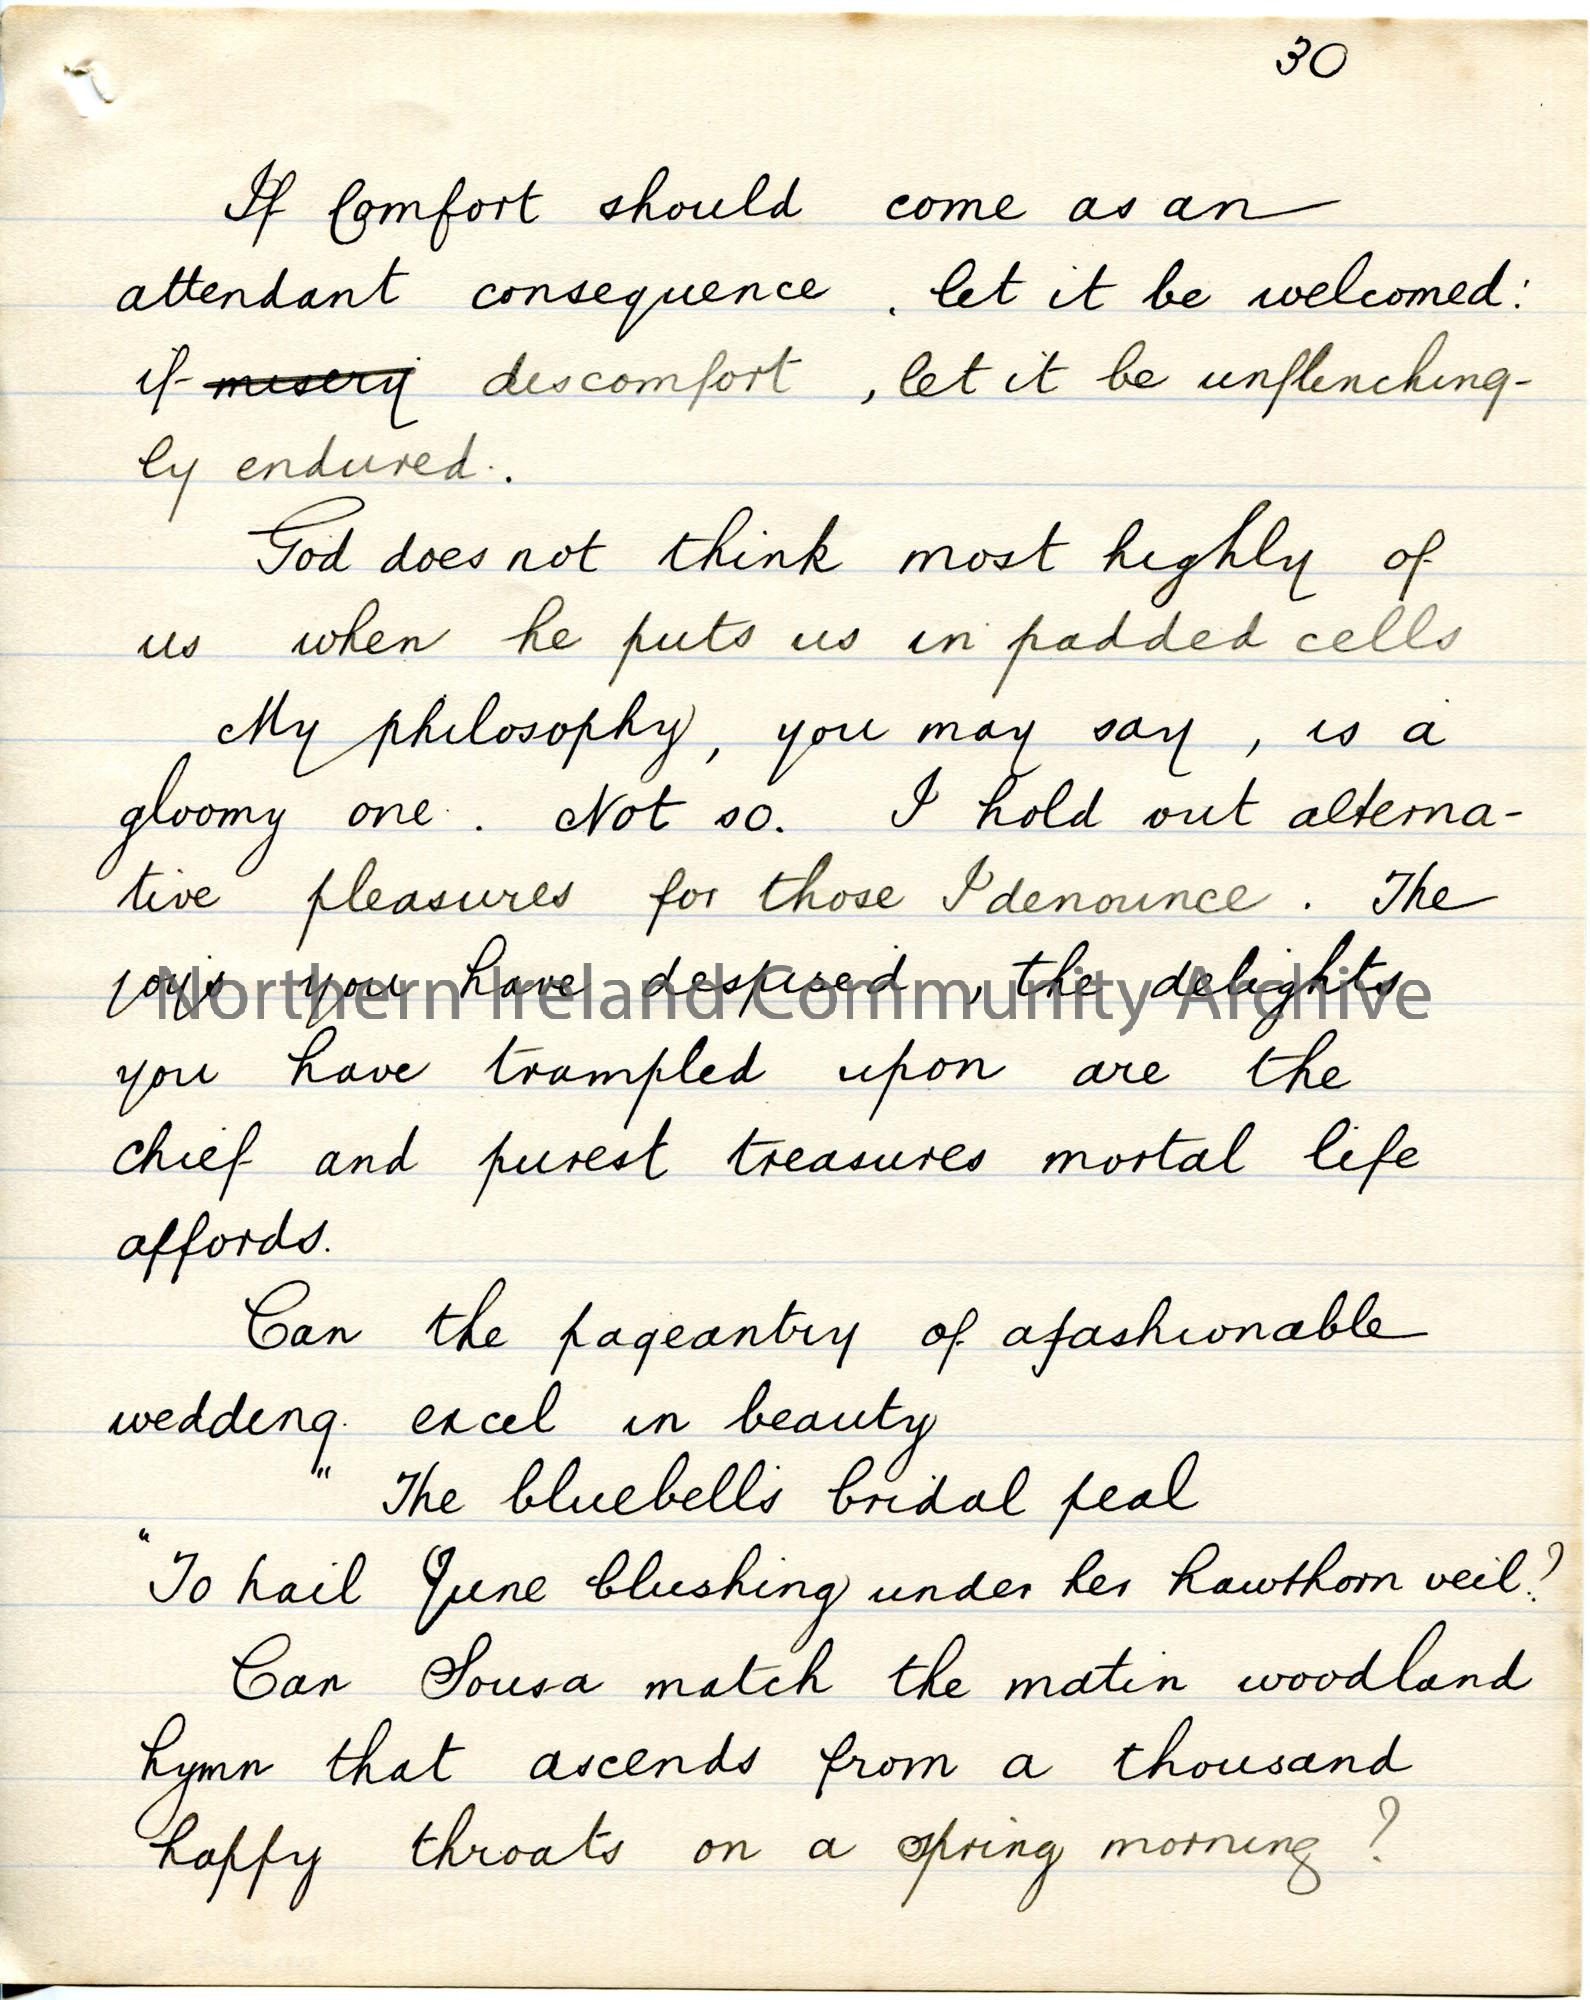 30
If Comfort should come as an
attendant consequence , let it be welcomed:
if misery discomfort , let it be unflinching-
ly endured.
God does not think most highly of
us when he puts us in padded cells
My philosophy, you may say, is a
gloomy one. Not so. I hold out alterna-
tive pleasures for those I denounce. The
joys you have despised, the delights
Northern Ireland Community Archive
you have trampled upon are the
chief and purest treasures mortal life
affords.
Can the pageantry of a fashionable
wedding excel in beauty
" The bluebells bridal peal
"To hail June blushing under her hawthorn veil?
Can Sousa match the matin woodland
hymn that ascends from a thousand
happy throats on a spring morning?